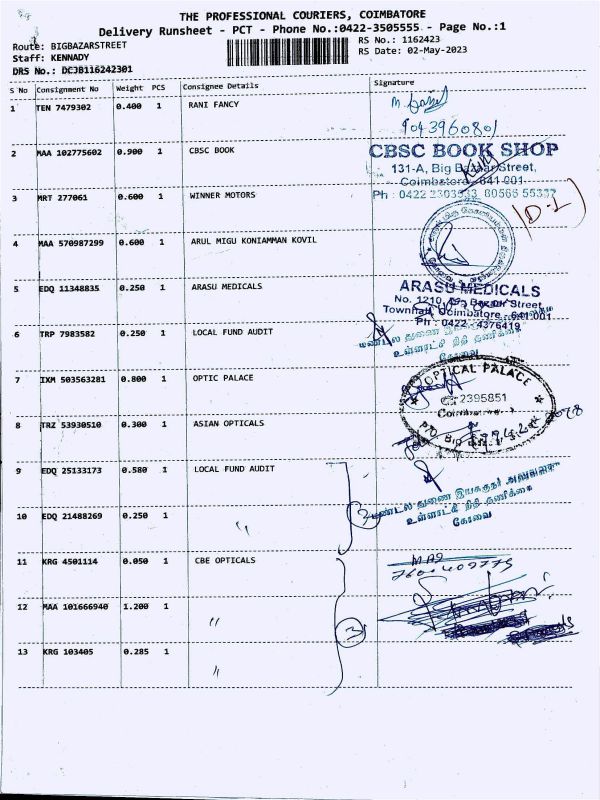 THE PROFESSIONAL COURIERS, COIMBATORE
Delivery Runsheet - PCT - Phone No.:0422-3505555 - Page No.:1
Route: BIGBAZARSTREET
RS No.: 1162423
Staff: KENNADY
RS Date: 02-May-2023
DRS No.: DCJB116242301
S No Consignment No Weight PCS Consignee Details Signature
1 TEN 7479302 0.400 1 RANI FANCY
2 MAA 102775602 0.900 1 CBSC BOOK
CBSC BOOK SHOP
131-A, Big Bazaar Street,
Coimbatore - 641 001
3 MRT 277061 0.600 1 WINNER MOTORS
(D-1)
4 MAA 570987299 0.600 1 ARUL MIGU KONIAMMAN KOVIL
5 EDQ 11348835 0.250 1 ARASU MEDICALS
ARASU MEDICALS
Townhall, Coimbatore - 641 001
Ph : 0422 - 4376419
6 TRP 7983582 0.250 1 LOCAL FUND AUDIT
மண்டல துணை
உள்ளாட்சி நிதி தணிக்கை
கோவை
7 IXM 503563281 0.800 1 OPTIC PALACE
OPTICAL PALACE
2395851
8 TRZ 53930510 0.300 1 ASIAN OPTICALS
9 EDQ 25133173 0.580 1 LOCAL FUND AUDIT
மண்டல துணை இயக்குநர் அலுவலகம்
உள்ளாட்சி நிதி தணிக்கை
கோவை
10 EDQ 21488269 0.250 1 〃
11 KRG 4501114 0.050 1 CBE OPTICALS
12 MAA 101666940 1.200 1 〃
3
13 KRG 103405 0.285 1 〃